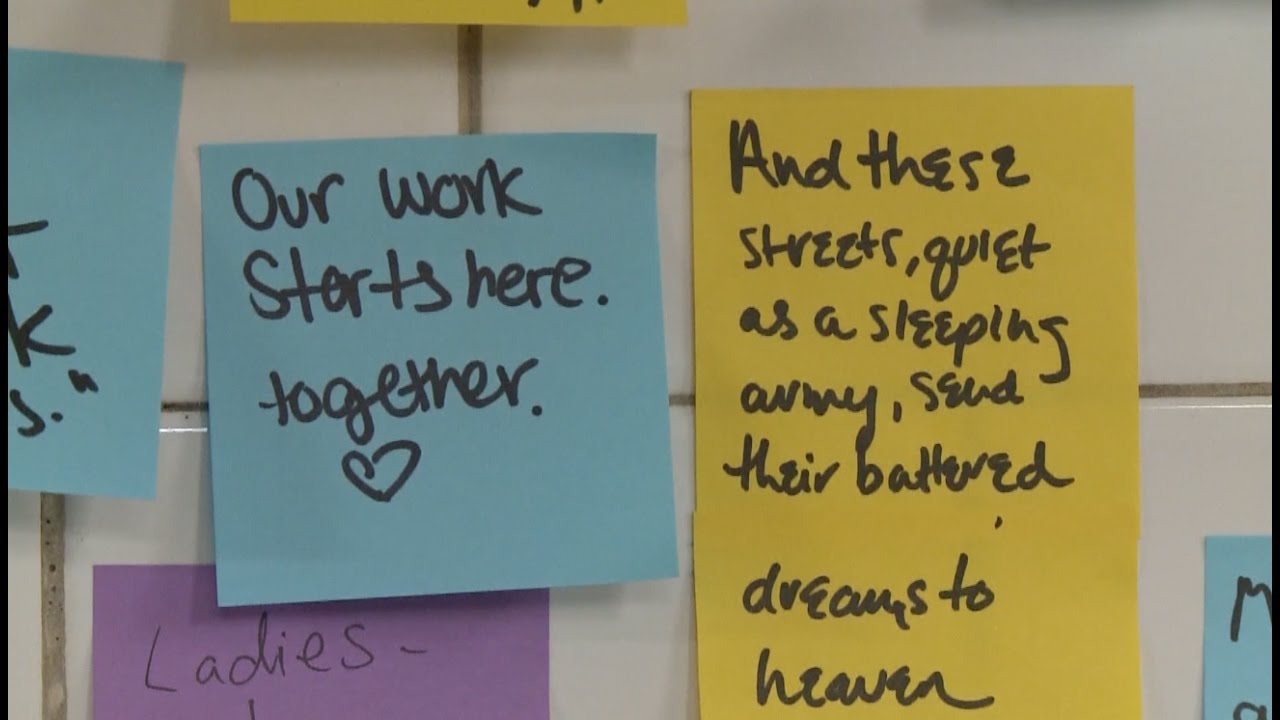 Our work
Starts here.
together.
And these
streets, quiet
as a sleeping
army, send
their battered
dreams to
heaven
Ladies-